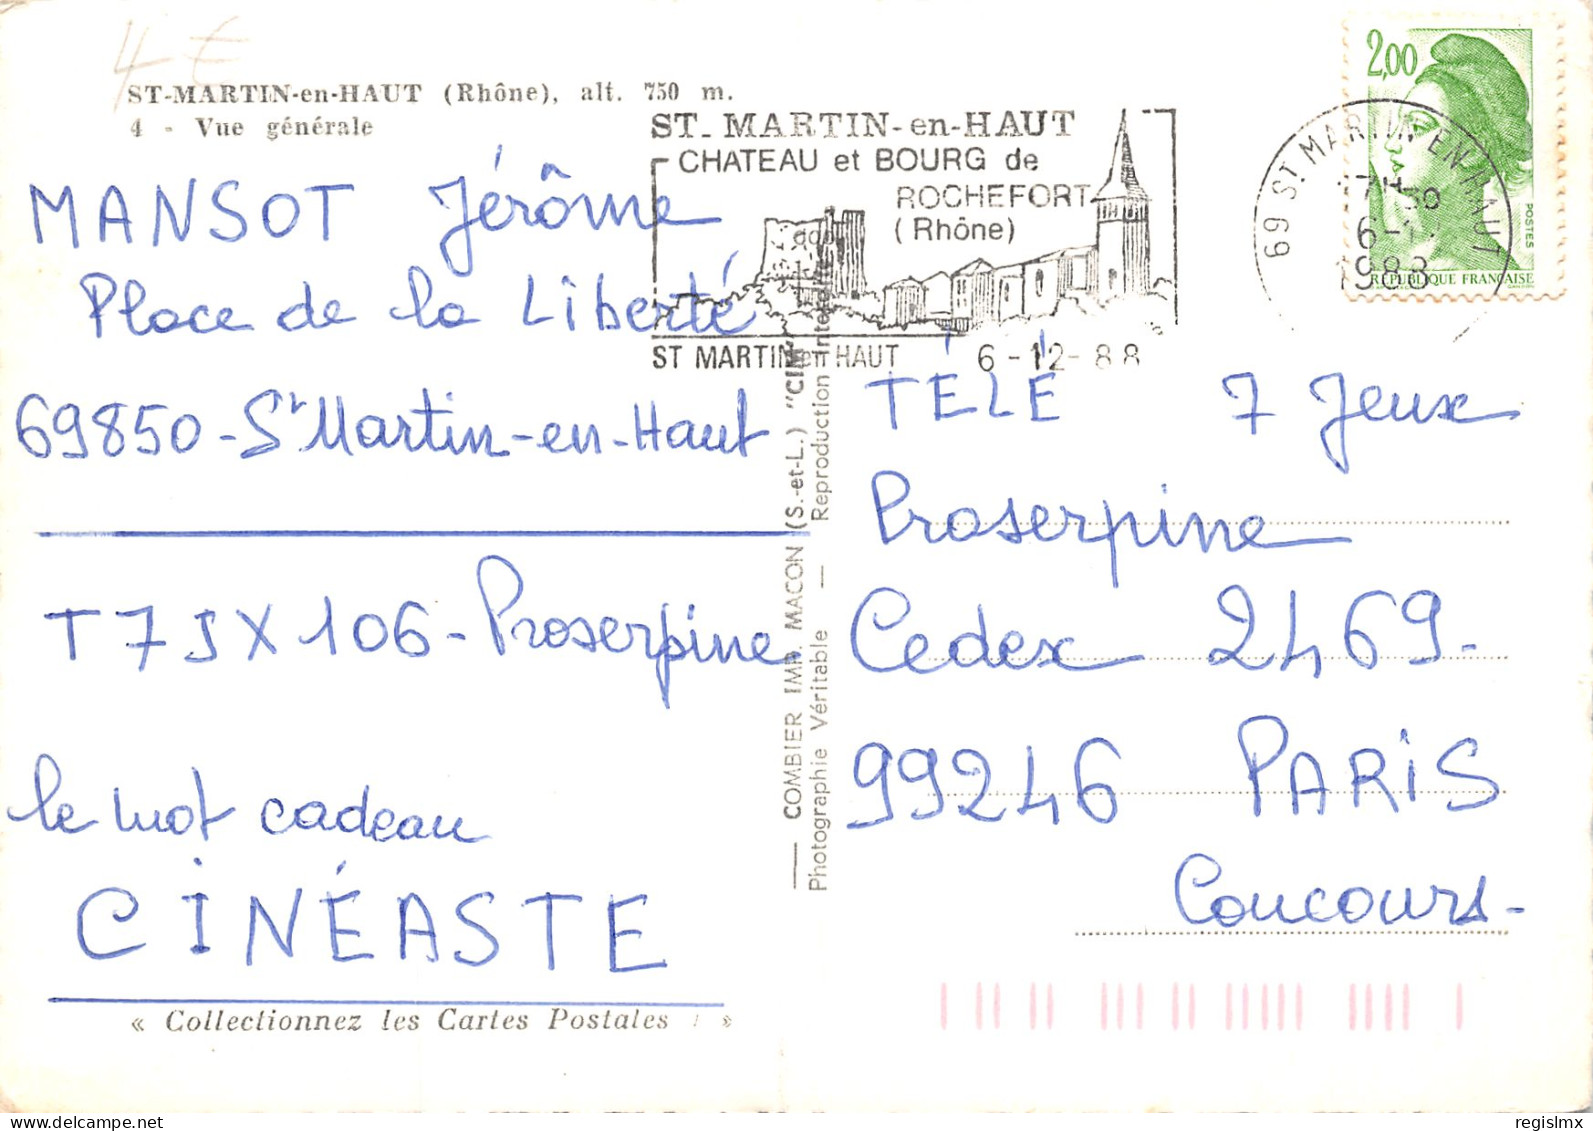 4 €
ST-MARTIN-en-HAUT (Rhône), alt. 750 m.
4 - Vue générale
MANSOT Jérôme
Place de la Liberté
69850 - St Martin-en-Haut
T7JX106 - Proserpine
le mot cadeau
CINÉASTE
« Collectionnez les Cartes Postales ! »
ST. MARTIN-en-HAUT
CHATEAU et BOURG de
ROCHEFORT
(Rhône)
ST MARTIN en HAUT 6-12-88
69 ST. MARTIN EN HAUT
1988
2,00
POSTES
REPUBLIQUE FRANÇAISE
— COMBIER IMP. MACON (S.-et-L.) "CIM"
Photographie Véritable — Reproduction
TÉLÉ 7 Jeux
Proserpine
Cedex 2469-
99246 PARIS
Concours-
regislmx